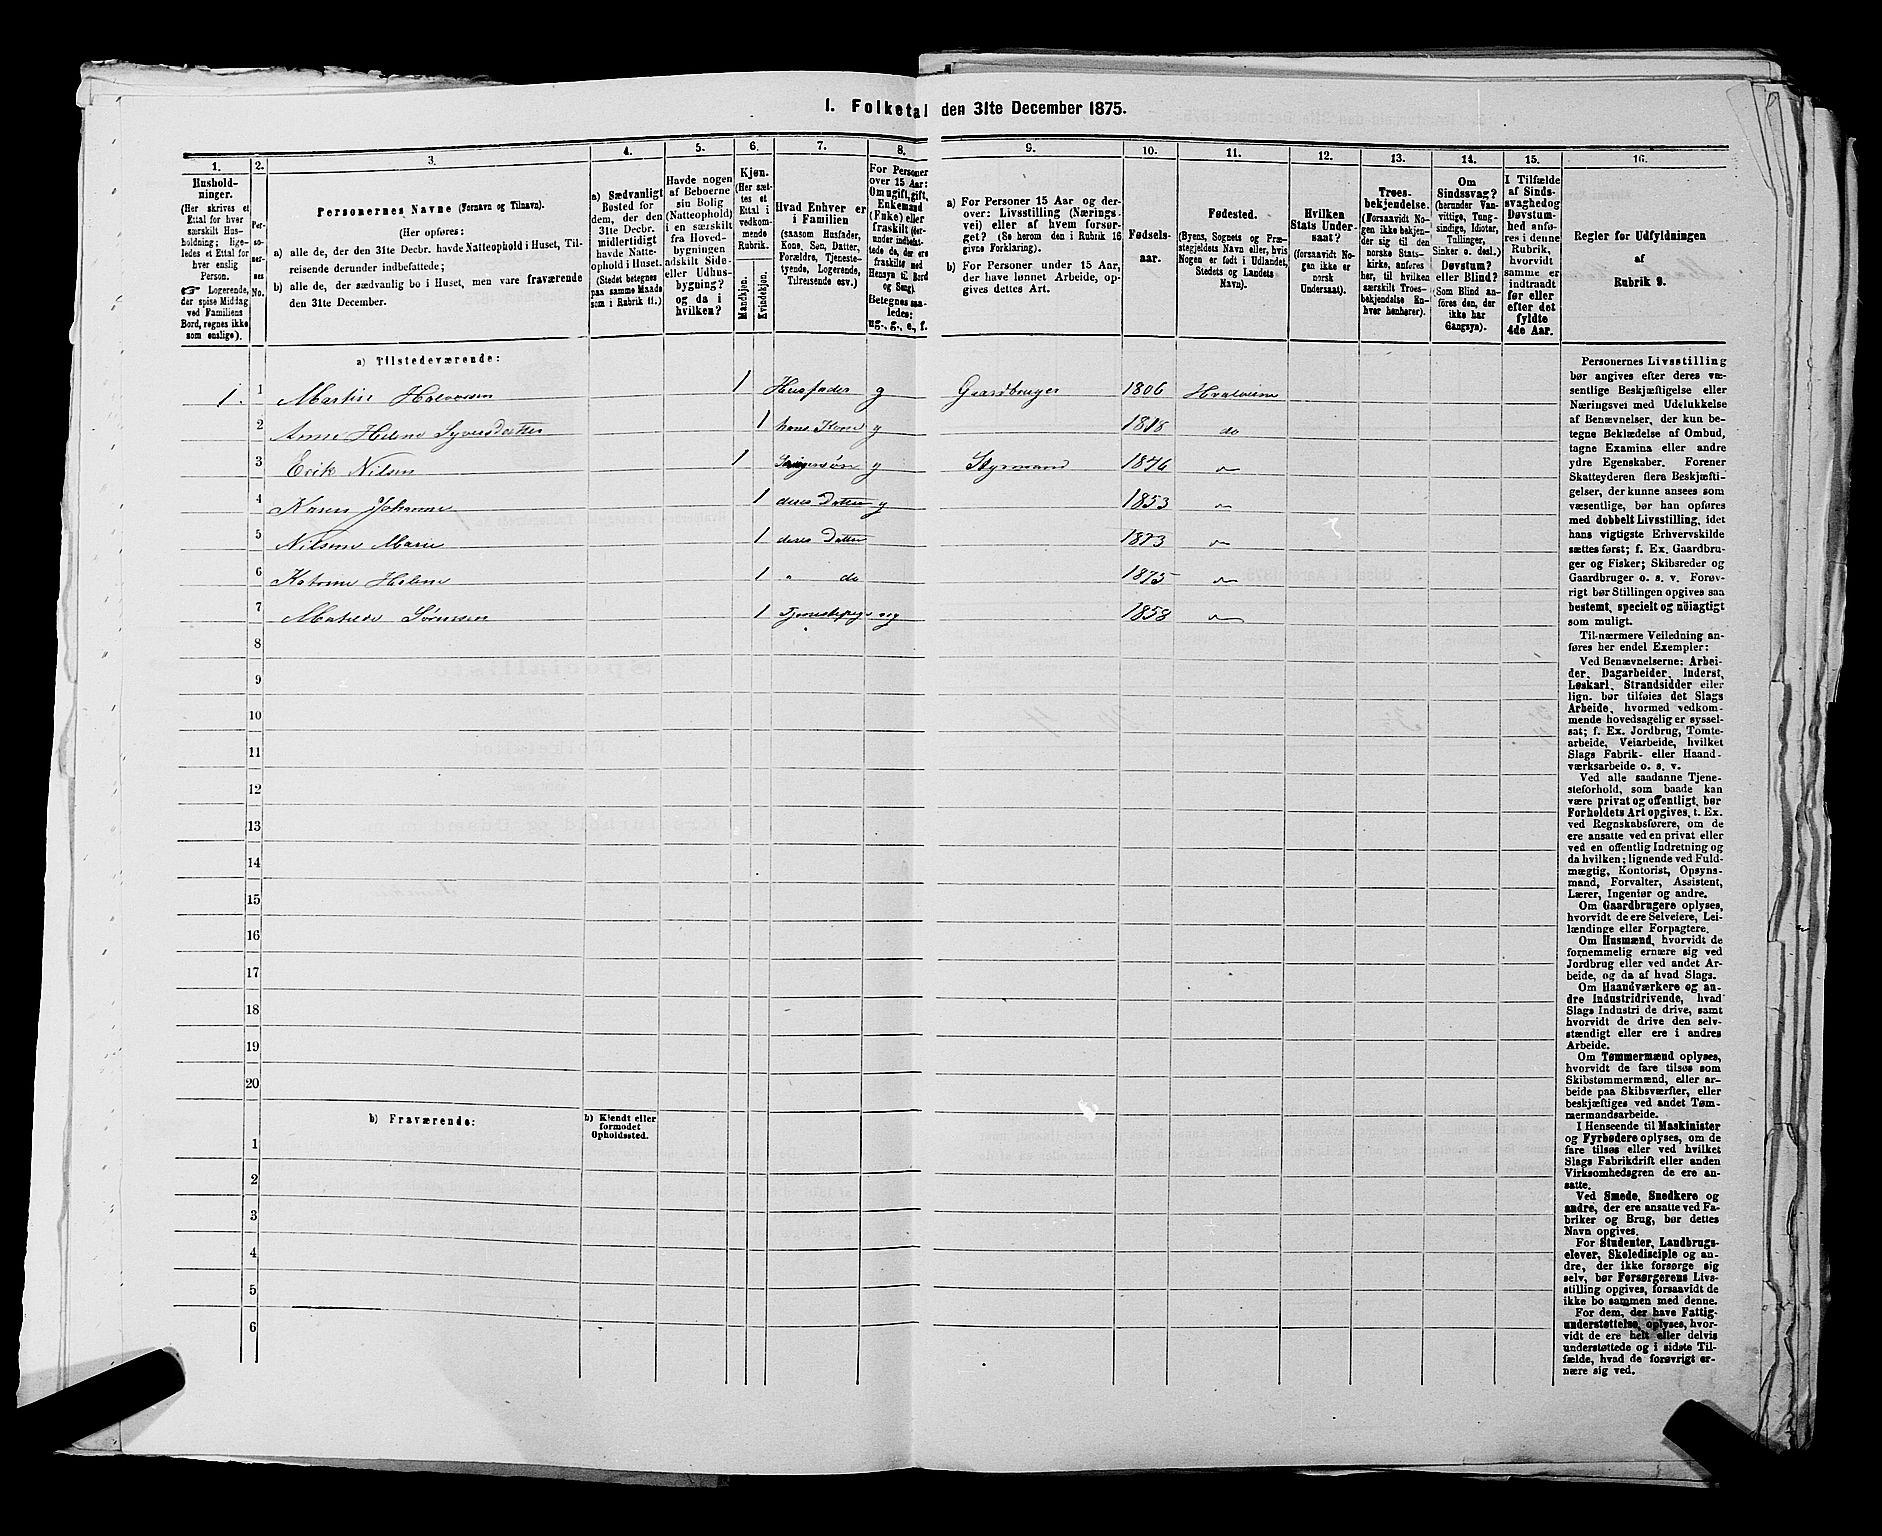 I. Folketal den 31te December 1875.
1.
2.
3.
4.
5.
6.
7.
8.
9.
10.
11.
12.
13.
14.
15.
16.
Hushold-
ninger.
(Her skrives et
Ettal for hver
særskilt Hus-
holdning; lige-
ledes et Ettal
for hver
enslig
Person.
☞ Logerende,
der spise Middag
ved Familiens
Bord, regnes ikke
som enslige).
Per-
so-
ner-
nes
No.
Personernes Navne (Fornavn og Tilnavn).
(Her opføres:
a) alle de, der den 31te Decbr. havde Natteophold i Huset, Til-
reisende derunder indbefattede;
b) alle de, der sædvanlig bo i Huset, men vare fraværende
den 31te December.
a) Sædvanligt
Bosted for
dem, der den
31te Decbr.
midlertidigt
havde Natte-
ophold i Huset.
(Stedet betegnes
paa samme Maade
som i Rubrik 11.)
Havde nogen
af Beboerne
sin Bolig
(Natteophold)
i en særskilt
fra Hoved-
bygningen
adskilt Side-
eller Udhus-
bygning?
og da i
hvilken?
Kjøn.
(Her sæt-
tes et
Ettal i
vedkom-
mende
Rubrik.
Mandkjøn.
Kvindekjøn.
Hvad Enhver er
i Familien
(saasom Husfader,
Kone, Søn, Datter,
Forældre, Tjeneste-
tyende, Logerende,
Tilreisende osv.)
For Personer
over 15 Aar:
Om ugift, gift,
Enkemand
(Enke) eller
fraskilt (der-
under indbefat-
tede de, der ere
fraskilte med
Hensyn til Bord
og Seng).
Betegnes saa-
ledes:
ug., g., e., f.
a) For Personer 15 Aar og der-
over: Livsstilling (Nærings-
vei) eller af hvem forsør-
get? (Se herom den i Rubrik 16
givne Forklaring).
b) For Personer under 15 Aar,
der have lønnet Arbeide, op-
gives dettes Art.
Fødsels-
aar.
Fødested.
(Byens, Sognets og Præ-
stegjeldets Navn eller, hvis
Nogen er født i Udlandet,
Stedets og Landets
Navn).
Hvilken
Stats Under-
saat?
(forsaavidt No-
gen ikke er
norsk
Undersaat).
Troes-
bekjendelse.
(Forsaavidt No-
gen ikke bekjen-
der sig til den
norske Stats-
kirke, anføres
her, til hvilken
særskilt Troes-
bekjendelse En-
hver henhører).
Om
Sindssvag?
(herunder Van-
vittige, Tung-
sindige, Idioter,
Tullinger,
Sinker o. desl.)
Døvstum?
eller Blind?
(Som Blind an-
føres den, der
ikke har
Gangsyn).
I Tilfælde
af Sinds-
svaghed og
Døvstum-
hed anfø-
res i denne
Rubrik,
hvorvidt
samme er
indtraadt
før eller
efter det
fyldte
4de Aar.
Regler for Udfyldningen
af
Rubrik 9.
a) Tilstedeværende:
1. 1 Martin Halvorsen 1 Husfader g Gaardbruger 1806 Hvaløerne
2 Anne Helene Syversdatter 1 hans Kone g 1818 do
3 Erik Nilsen 1 g Styrmand 1846 "
4 Karen Johanne 1 deres Datter g 1853 "
5 Nilsine Marie 1 deres Datter 1873 "
6 Helene 1 " do 1875 "
7 Matilde Sørensen 1 ug 1858 "
8
9
10
11
12
13
14
15
16
17
18
19
20
b) Fraværende:
b) Kjendt eller
formodet
Opholdssted.
1
2
3
4
5
6
Personernes Livsstilling
bør angives efter deres væ-
sentlige Beskjæftigelse eller
Næringsvei med Udelukkelse
af Benævnelser, der kun be-
tegne Beklædelse af Ombud,
tagne Examina eller andre
ydre Egenskaber. Forener
Skatteyderen flere Beskjæfti-
gelser, der kunne ansees som
væsentlige, bør han opføres
med dobbelt Livsstilling, idet
hans vigtigste Erhvervskilde
sættes først; f. Ex. Gaardbru-
ger og Fisker; Skibsreder og
Gaardbruger o. s. v. Forøv-
rigt bør Stillingen opgives saa
bestemt, specielt og nöiagtigt
som muligt.
Til nærmere Veiledning an-
føres her endel Exempler:
Ved Benævnelserne: Arbei-
der, Dagarbeider, Inderst,
Løskarl, Strandsidder eller
lign. bør tilføies det Slags
Arbeide, hvormed vedkom-
mende hovedsagelig er syssel-
sat; f. Ex. Jordbrug, Tomte-
arbeide, Veiarbeide, hvilket
Slags Fabrik- eller Haand-
værksarbeide o. s. v.
Ved alle saadanne Tjene-
steforhold, som baade kan
være privat og offentligt, bør
Forholdets Art opgives, t. Ex.
ved Regnskabsførere, om de
ere ansatte ved en privat eller
ved en offentlig Indretning og
da hvilken; lignende ved Fuld-
mægtig, Kontorist, Opsyns-
mand, Forvalter, Assistent,
Lærer, Ingeniør og andre.
Om Gaardbrugere oplyses,
hvorvidt de ere Selveiere, Lei-
lændinge eller Forpagtere.
Om Husmænd, hvorvidt de
fornemmelig ernære sig ved
Jordbrug eller ved andet Ar-
beide, og da af hvad Slags.
Om Haandværkere og an-
dre Industridrivende, hvad
Slags Industri de drive, samt
hvorvidt de drive den selv-
stændigt eller ere i andres
Arbeide.
Om Tømmermænd oplyses,
hvorvidt de fare tilsøs som
Skibstømmermænd, eller ar-
beide paa Skibsværfter, eller
beskjæftiges ved andet Tøm-
mermandsarbeide.
I Henseende til Maskinister
og Fyrbødere oplyses, om de
fare tilsøs eller ved hvilket
Slags Fabrikdrift eller anden
Virksomhedsgren de ere an-
satte.
Ved Smede, Snedkere og
andre, der ere ansatte ved Fa-
briker og Brug, bør dettes
Navn opgives.
For Studenter, Landbrugs-
elever, Skoledisciple og an-
dre, der ikke forsørge sig
selv, bør Forsørgerens Livs-
stilling opgives, forsaavidt de
ikke bo sammen med denne.
For dem, der have Fattig-
understøttelse, oplyses, hvor-
vidt de ere helt eller delvis
understøttede og i sidste Til-
fælde, hvad de forøvrigt er-
nære sig ved.